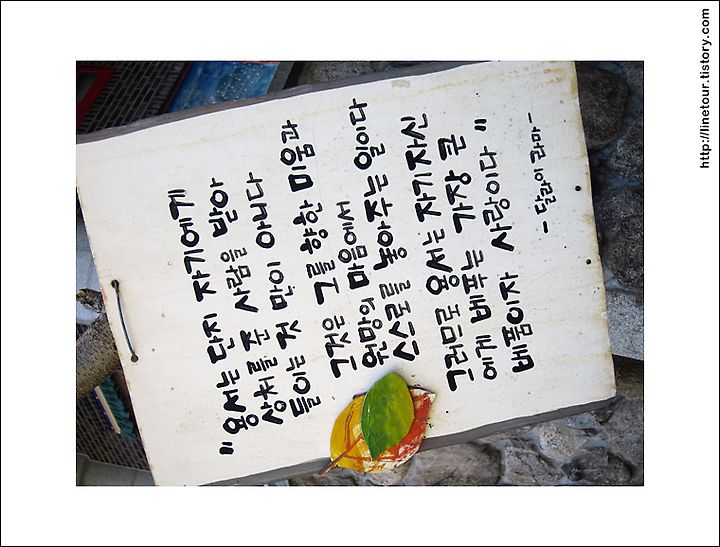 "용서는 단지 자기에게
상처를 준 사람을 받아
들이는 것 만이 아니다
그것은 그를 향한 미움과
원망의 마음에서
스스로를 놓아주는 일이다
그러므로 용서는 자기자신
에게 베푸는 가장 큰
베품이자 사랑이다"
- 달라이 라마 -
http://linetour.tistory.com